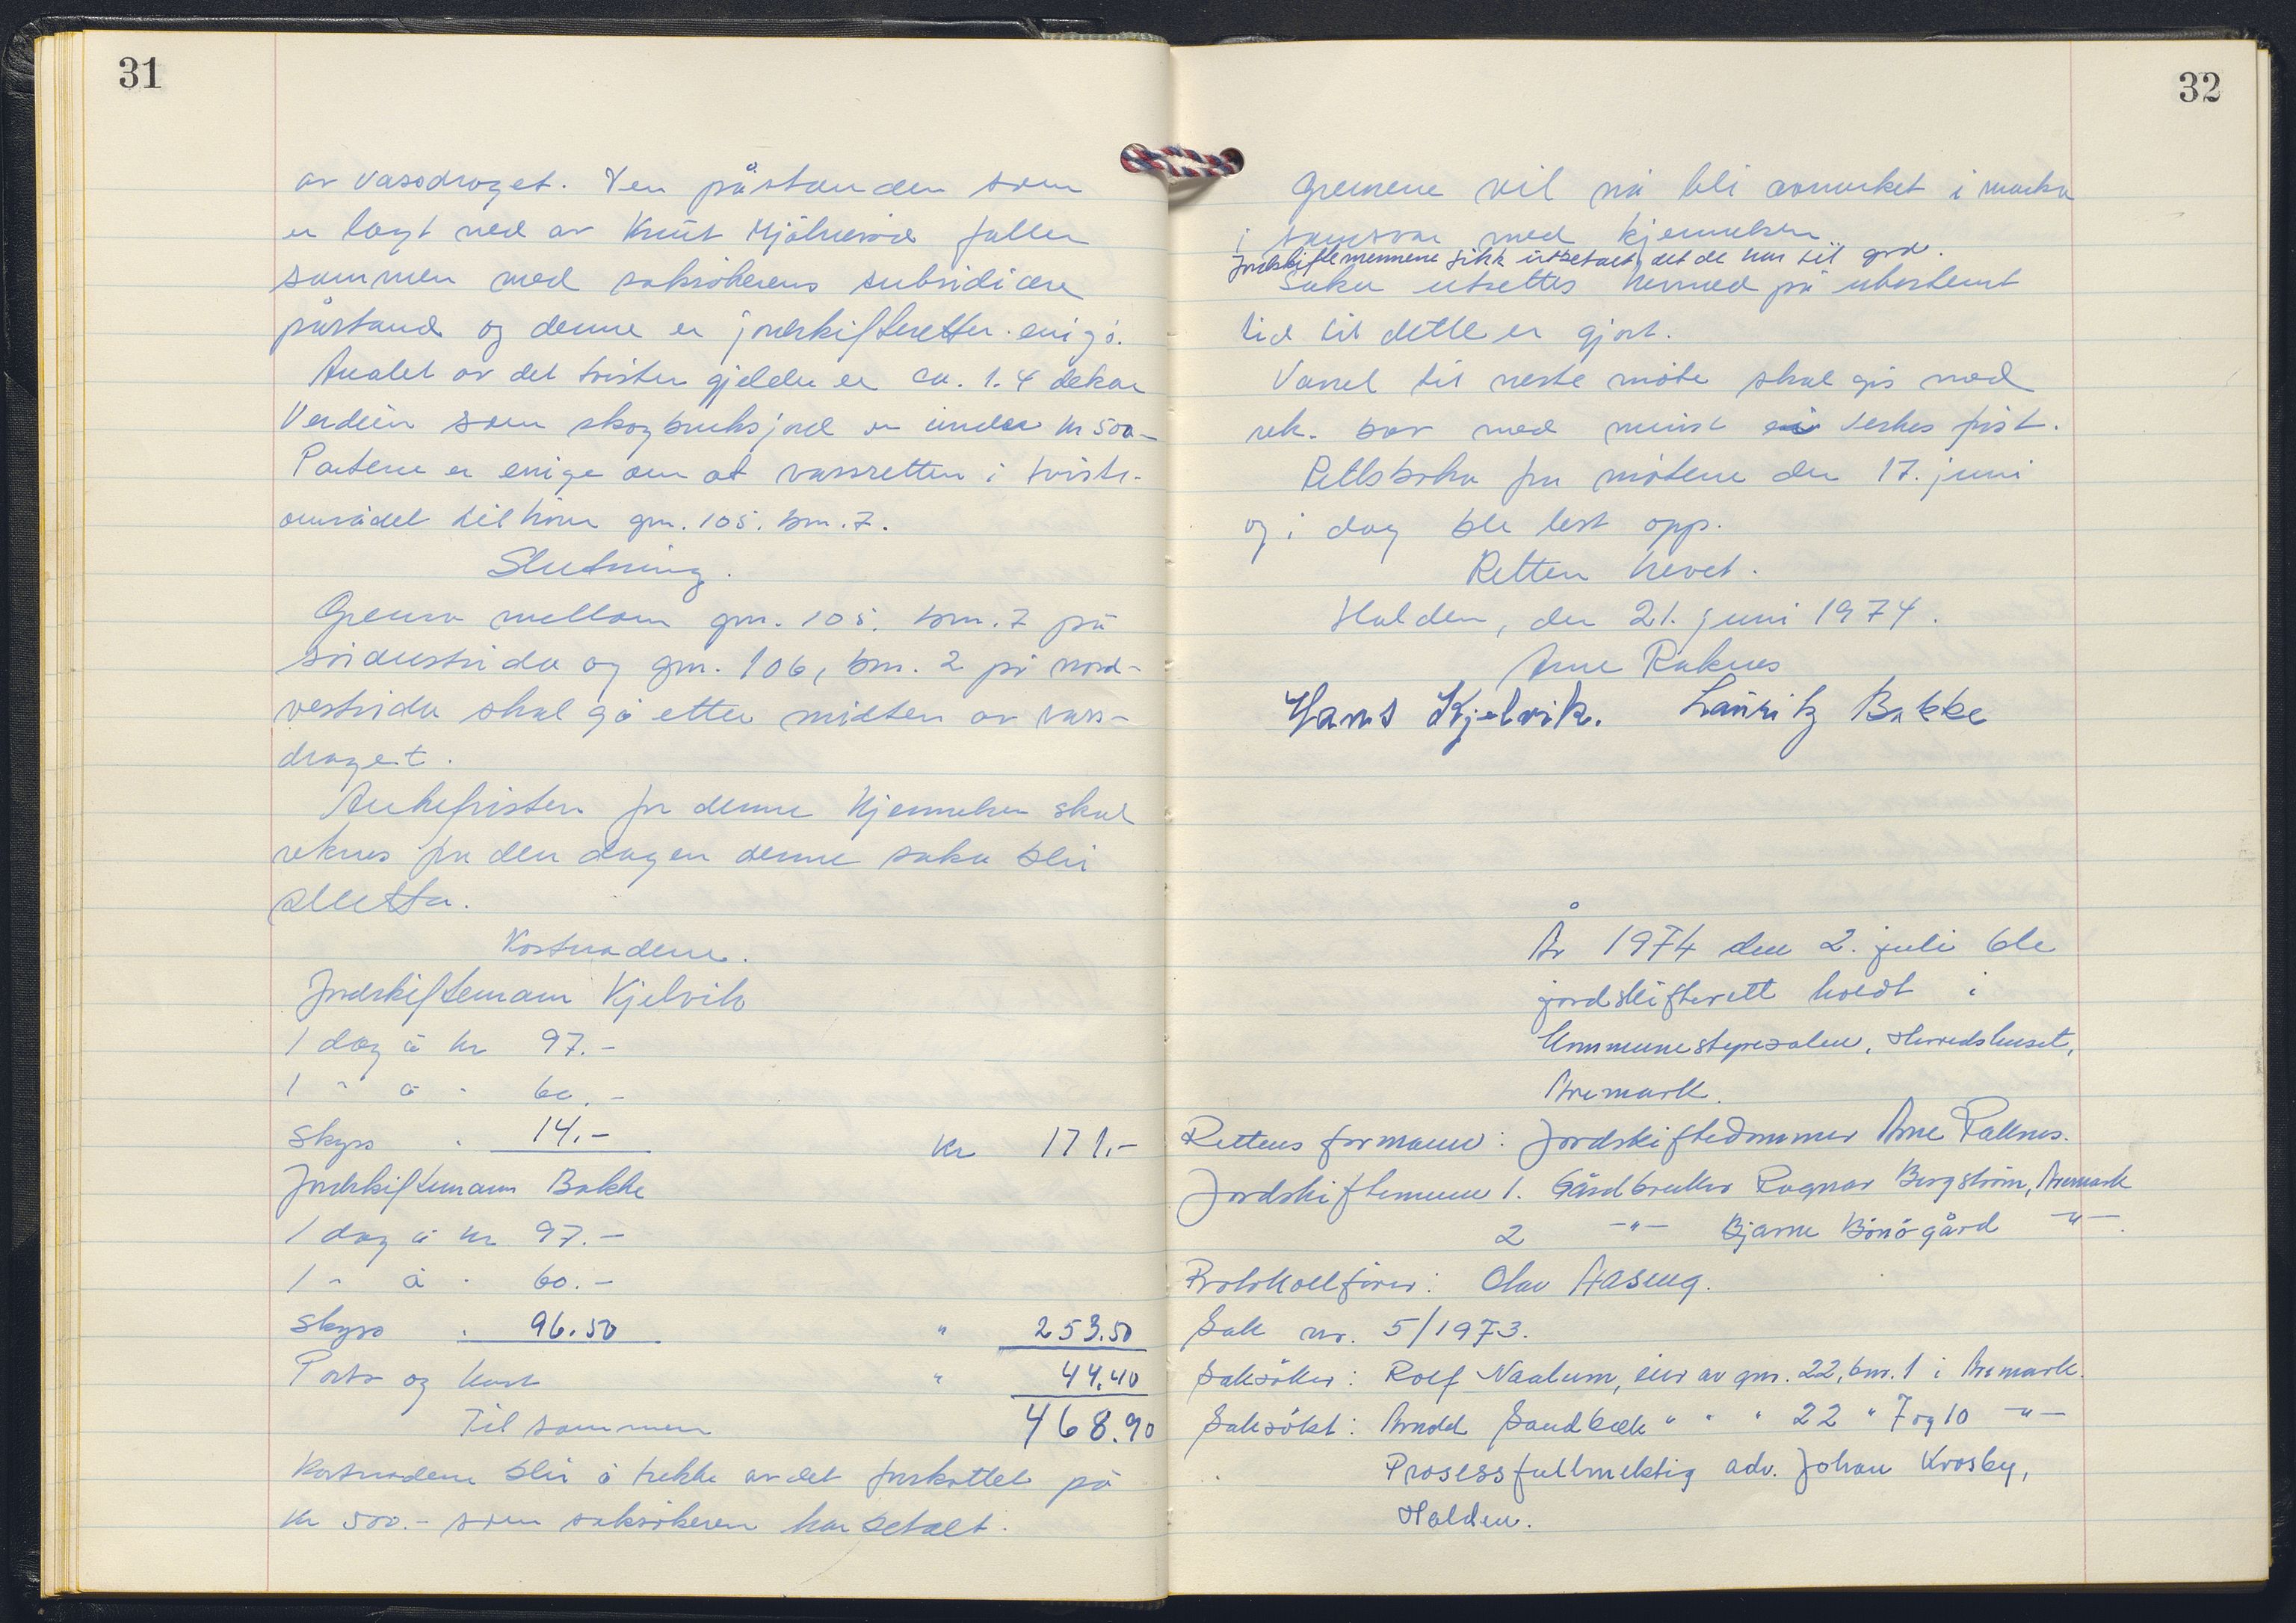 31
av vassdraget. Den påstanden som
er lagt ned av Knut Mjølnerød faller
sammen med saksøkerens subsidiære
påstand og denne er jordskifteretten enig i.
Arealet av det tvisten gjelder er ca. 1.4 dekar
Verdien som skogbruksjord er under kr 500.-
Partene er enige om at vassretten i tviste-
området tilhører gnr. 105. bnr. 7.
Slutning.
Grensa mellom gnr. 105. bnr. 7 på
sørøstsida og gnr. 106, bnr. 2 på nord-
vestsida skal gå etter midten av vass-
draget.
Ankefristen for denne kjennelsen skal
reknes fra den dagen denne saka blir
slutta.
Kostnadene.
Jordskiftemann Kjelvik
1 dag à kr 97.-
1 " à " 60.-
Skyss " 14.- kr 171.-
Jordskiftemann Bakke
1 dag à kr 97.-
1 " à " 60.-
Skyss " 96.50 " 253.50
Porto og " 44.40
Til sammen 468.90
Kostnadene blir å trekke av det forskottet på
kr 500.- som saksøkeren har betalt.
32
Grensene vil nå bli avmerket i marka
i samsvar med kjennelsen.
Jordskiftemennene fikk utbetalt det de har til god.
Saka utsettes hermed på ubestemt
tid til dette er gjort.
Varsel til neste møte skal gis med
rek. brev med minst ei vekes frist.
Rettsboka fra møtene den 17. juni
og i dag ble lest opp.
Retten hevet.
Halden, den 21. juni 1974.
Arne Raknes
Hans Kjelvik. Lauritz Bakke
År 1974 den 2. juli ble
jordskifterett holdt i
Kommunestyresalen, Herredshuset,
Aremark.
Rettens formann: Jordskiftedommer Arne Raknes.
Jordskiftemenn 1. Gårdbruker Ragnar Bergström, Aremark
2 -"- Bjarne Bönögård -"-.
Protokollfører: Olav Haseng.
Sak nr. 5/1973.
Saksøker: Rolf Naalum, eier av gnr. 22, bnr. 1 i Aremark.
Saksøkt: Arnold Sandbæk " " " 22 " 7 og 10 -"-
Prosessfullmektig adv. Johan Krosby,
Halden.